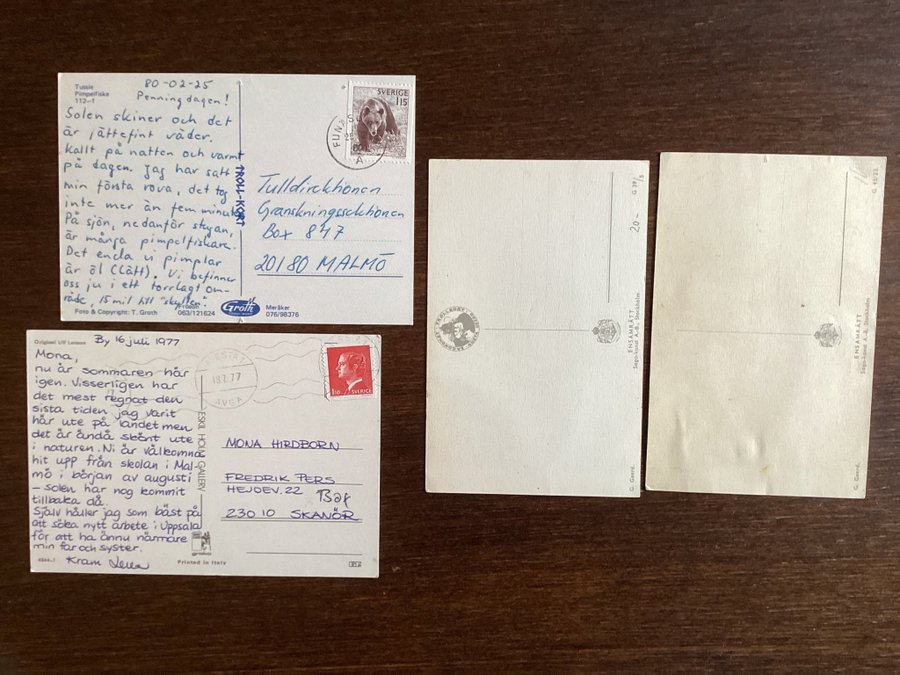 Tussie
Pimpelfiske
112-1
80-02-25
Penningdagen!
Solen skiner och det
är jättefint väder.
Kallt på natten och varmt
på dagen. Jag har satt
min första rova, det tog
inte mer än fem minuter
På sjön, nedanför stugan,
är många pimpelfiskare.
Det enda vi pimplar
är öl (Lätt). Vi befinner
oss ju i ett torrlagt om-
råde, 15 mil till "skylten".
063/121624
Foto & Copyright: T. Groth
TROLL-KORT
Groth
Meråker
076/98376
SVERIGE
115
Tulldirektionen
Granskningssektionen
Box 847
20180 MALMÖ
Original Ulf Larsson
By 16 juli 1977
Mona,
nu är sommaren här
igen. Visserligen har
det mest regnat den
sista tiden jag varit
här ute på landet men
det är ändå skönt ute
i naturen. Ni är välkomna
hit upp från skolan i Mal-
mö i början av augusti
- solen har nog kommit
tillbaka då.
Själv håller jag som bäst på
att söka nytt arbete i Uppsala
för att ha ännu närmare
min far och syster.
Kram Lena
Printed in Italy
ESKIL HOLM GALLERY
18.7.77
110 SVERIGE
MONA HIRDBORN
FREDRIK PERS
HEJDEV. 22
230 10 SKANÖR
G 39/5
20-
ENSAMRÄTT
Sago-konst A.-B. Stockholm
G. Gaard.
G 45/25
ENSAMRÄTT
Sago-konst A.-B. Stockholm
G. Gaard.